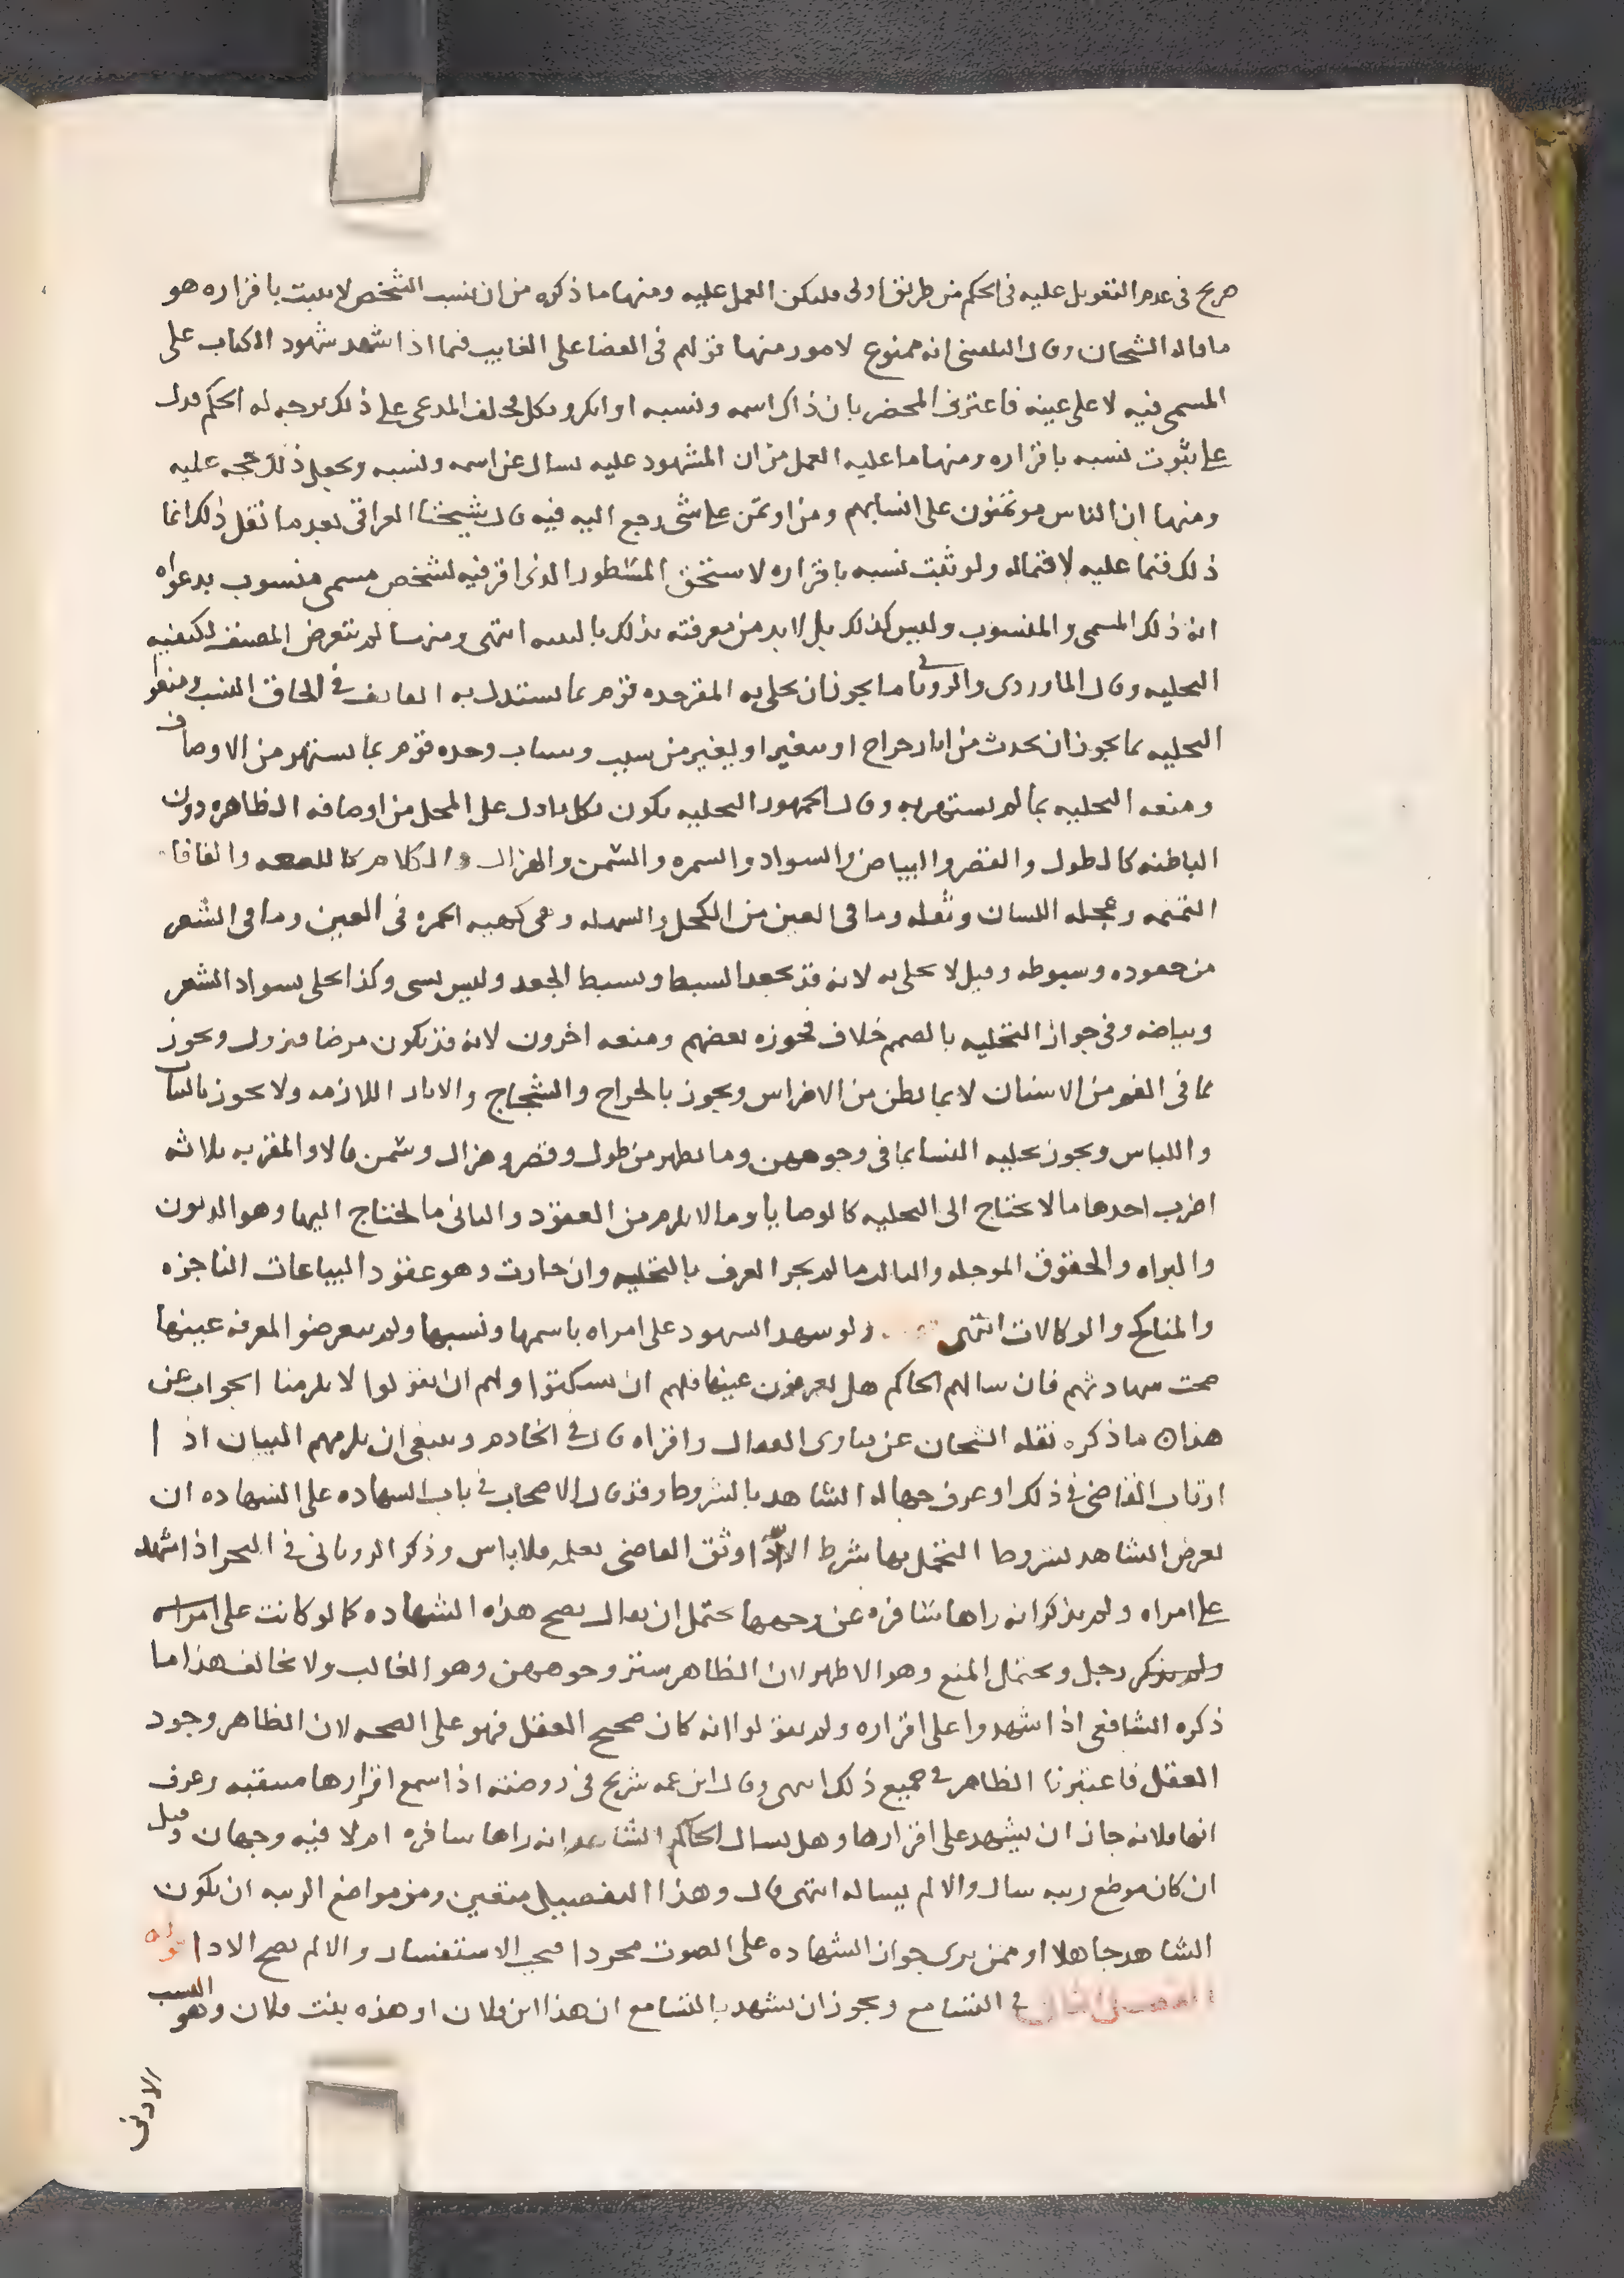 صريح في عدم التعويل عليه في الحكم من طريق اولى فليكن العمل عليه ومنها ما ذكره من ان نسب الشخص لا يثبت باقراره هو
ما قاله الشيخان وقال البلقيني انه ممنوع لامور منها قولهم في القضا على الغايب فيما اذا شهد شهود الكتاب على
المسمى فيه لا على عينه فاعترف المحضر بان ذاك اسمه ونسبه او انكر ونكل فحلف المدعي على ذلك توجه له الحكم فدل
على ثبوت نسبه باقراره ومنها ما عليه العمل من ان المشهود عليه يسال عن اسمه ونسبه ويجعل ذلك حجه عليه
ومنها ان الناس موتمنون على انسابهم ومن اوتمن على شي رجع اليه فيه قال شيخنا العراقي بعد ما نقل ذلك انما
ذلك فيما عليه لا فيما له ولو ثبت نسبه باقراره لاستحق المسطور الذي اقر فيه لشخص مسمى منسوب بدعواه
انه ذلك المسمى والمنسوب وليس كذلك بل لابد من معرفته بذلك بالبينه انتهى ومنها لم يتعرض المصنف لكيفيه
التحليه وقال الماوردي والروياني ما يجوز ان يحلى به المقر حده قوم بما يستدل به القايف في الحاق النسب ومنعوا
التحليه بما يجوز ان يحدث من اثار جراح او يتغير او يغير من شيب وشباب وحده قوم بما يشتهر من الاوصاف
ومنعه التحليه بما لم يشتهر به وقال الجمهور التحليه يكون بكل ما دل على المحل من اوصافه الظاهره دون
الباطنه كالطول والقصر والبياض والسواد والسمره والسمن والهزال والكلام كاللثغه والفافا
التمتمه وعجله اللسان وثقله وما في العين من الكحل والشهله وهي كهيه الحمره في العين وما في الشعر
من جعوده وسبوطه وقيل لا يحلى به لانه قد يجعد السبط ويسبط الجعد وليس بشي وكذا يحلى بسواد الشعر
وبياضه وفي جواز التحليه بالصمم خلاف فجوزه بعضهم ومنعه اخرون لانه قد يكون مرضا فيزول ويجوز
بما في الفم من الاسنان لا بما بطن من الاضراس ويجوز بالجراح والشجاج والاثار اللازمه ولا يجوز بالثياب
واللباس ويجوز تحليه النسا بما في وجوههن وما يظهر من طول وقصر وهزال وسمن قالا والمقر به ثلاثه
اضرب احدها ما لا يحتاج الى التحليه كالوصايا وما لا يلزم من العقود والثاني ما يحتاج اليها وهو الديون
والبراه والحقوق الموجله والثالث ما لم يجر العرف بالتحليه وان جازت وهو عقود البياعات الناجزه
والمناكح والوكالات انتهى ولو شهد الشهود على امراه باسمها ونسبها ولم يتعرضوا لمعرفه عينها
صحت شهادتهم فان سالهم الحاكم هل يعرفون عينها فلهم ان يسكتوا ولهم ان يقولوا لا يلزمنا الجواب عن
هذا ما ذكره نقله الشيخان عن فتاوى القفال واقراه قال في الخادم وينبغي ان يلزمهم البيان اذا
ارتاب القاضي في ذلك او عرف جهاله الشاهد بالشروط وقد قال الاصحاب في باب الشهاده على الشهاده ان
تعرض الشاهد لشروط التحمل بها شرط الا اذا وثق القاضي بعلمه فلا باس وذكر الروياني في البحر اذا شهد
على امراه ولم يذكر انه راها سافره عن وجهها يحتمل ان يقال تصح هذه الشهاده كما لو كانت على امراه
ولم يذكر رجل ويحتمل المنع وهو الاظهر لان الظاهر ستر وجوههن وهو الغالب ولا يخالف هذا ما
ذكره الشافعي اذا شهدوا على اقراره ولم يقولوا انه كان صحيح العقل فهو على الصحه لان الظاهر وجود
العقل فاعتبرنا الظاهر في جميع ذلك انتهى وقال ابن عمه شريح في روضته اذا سمع اقرارها منتقبه وعرف
انها فلانه جاز ان يشهد على اقرارها وهل يسال الحاكم الشاهد انه راها سافره ام لا فيه وجهان وقيل
ان كان موضع ريبه سال والا لم يساله انتهى قال وهذا التفصيل متعين ومن مواضع الريبه ان يكون
الشاهد جاهلا او ممن يرى جواز الشهاده على الصوت مجردا فيجب الاستفسار والا لم يصح الادا قوله
الفصل الثاني في التسامع ويجوز ان يشهد بالتسامع ان هذا ابن فلان او هذه بنت فلان وهو النسب
الادنى